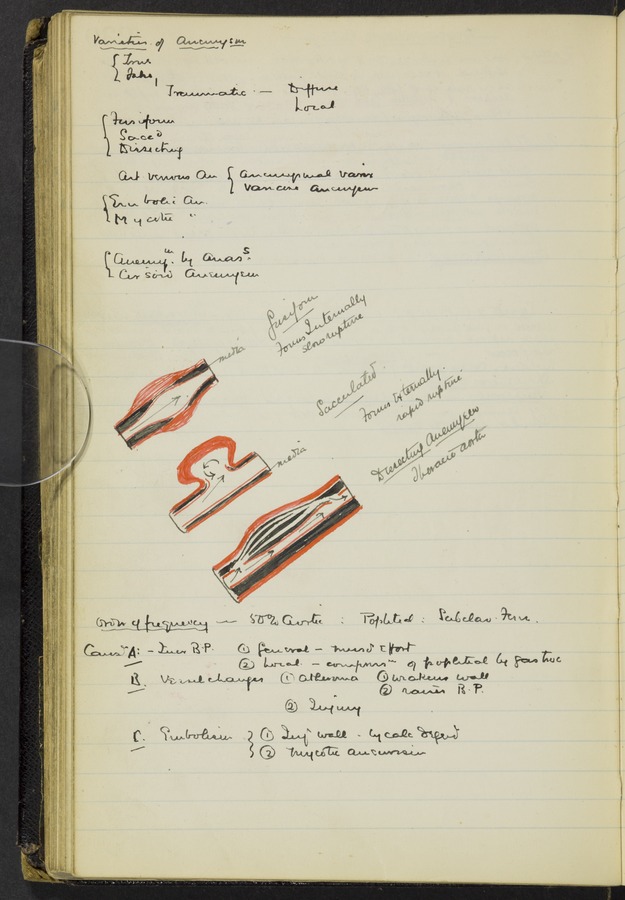 Varieties of Aneurysm
True
False,
Traumatic — Diffuse
Local
Fusiform
Sacc^d
Dissecting
Art venous An { Aneurysmal varix
Varicose aneurysm
Embolic An.
Mycotic "
Aneury^m. by Anas^s.
Cirsoid Aneurysm
Fusiform
Forms Internally
slow rupture
media
Sacculated.
Forms Externally.
rapid rupture
media
Dissecting Aneurysm
Thoracic aorta
Order of frequency — 50% Aortic : Popliteal : Subclav. Fem.
Caus^n A: - Incr B.P. ① General – musc^r effort
② Local – compress^n of popliteal by gastroc
B. Vessel changes ① atheroma ① weakens wall
② raises B.P.
② Injury
C. Embolism } ① Inj^s wall -
② Mycotic aneurysm